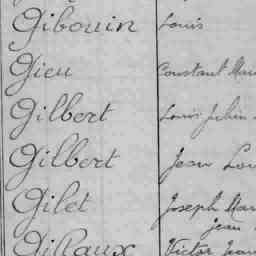 Gibouin Louis
Gieu Constant Marie
Gilbert Louis Julien
Gilbert Jean Lou
Gilet Joseph Mar
Jean
Gillaux Victor Jean